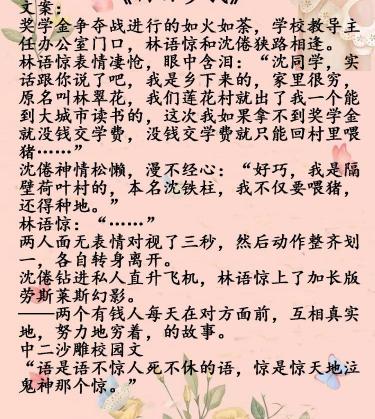 文案：
奖学金争夺战进行的如火如荼，学校教导主
任办公室门口，林语惊和沈倦狭路相逢。
林语惊表情凄怆，眼中含泪：“沈同学，实
话跟你说了吧，我是乡下来的，家里很穷，
原名叫林翠花，我们莲花村就出了我一个能
到大城市读书的，这次我如果拿不到奖学金
就没钱交学费，没钱交学费就只能回村里喂
猪……”
沈倦神情松懒，漫不经心：“好巧，我是隔
壁荷叶村的，本名沈铁柱，我不仅要喂猪，
还得种地。”
林语惊：“……”
两人面无表情对视了三秒，然后动作整齐划
一，各自转身离开。
沈倦钻进私人直升飞机，林语惊上了加长版
劳斯莱斯幻影。
——两个有钱人每天在对方面前，互相真实
地，努力地穷着，的故事。
中二沙雕校园文
“语是语不惊人死不休的语，惊是惊天地泣
鬼神那个惊。”